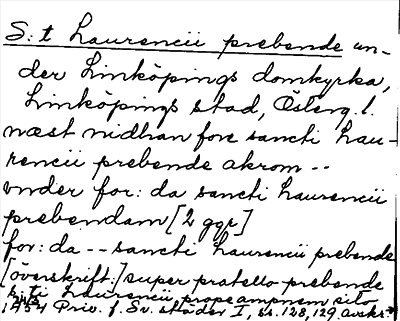 S:t Laurencii prebende un-
der Linköpings domkyrka,
Linköpings stad, Österg. l.
næst nidhan fore sancti Lau-
rencii prebende akrom --
vnder for: da sancti Laurencii
prebendam [2 ggr]
for: da -- sancti Laurencii prebende
[överskrift:] super pratello prebende
s:ti Laurencii prope ampnem sito
1454 Priv. f. Sv. städer I, ss. 128, 129 avskr.